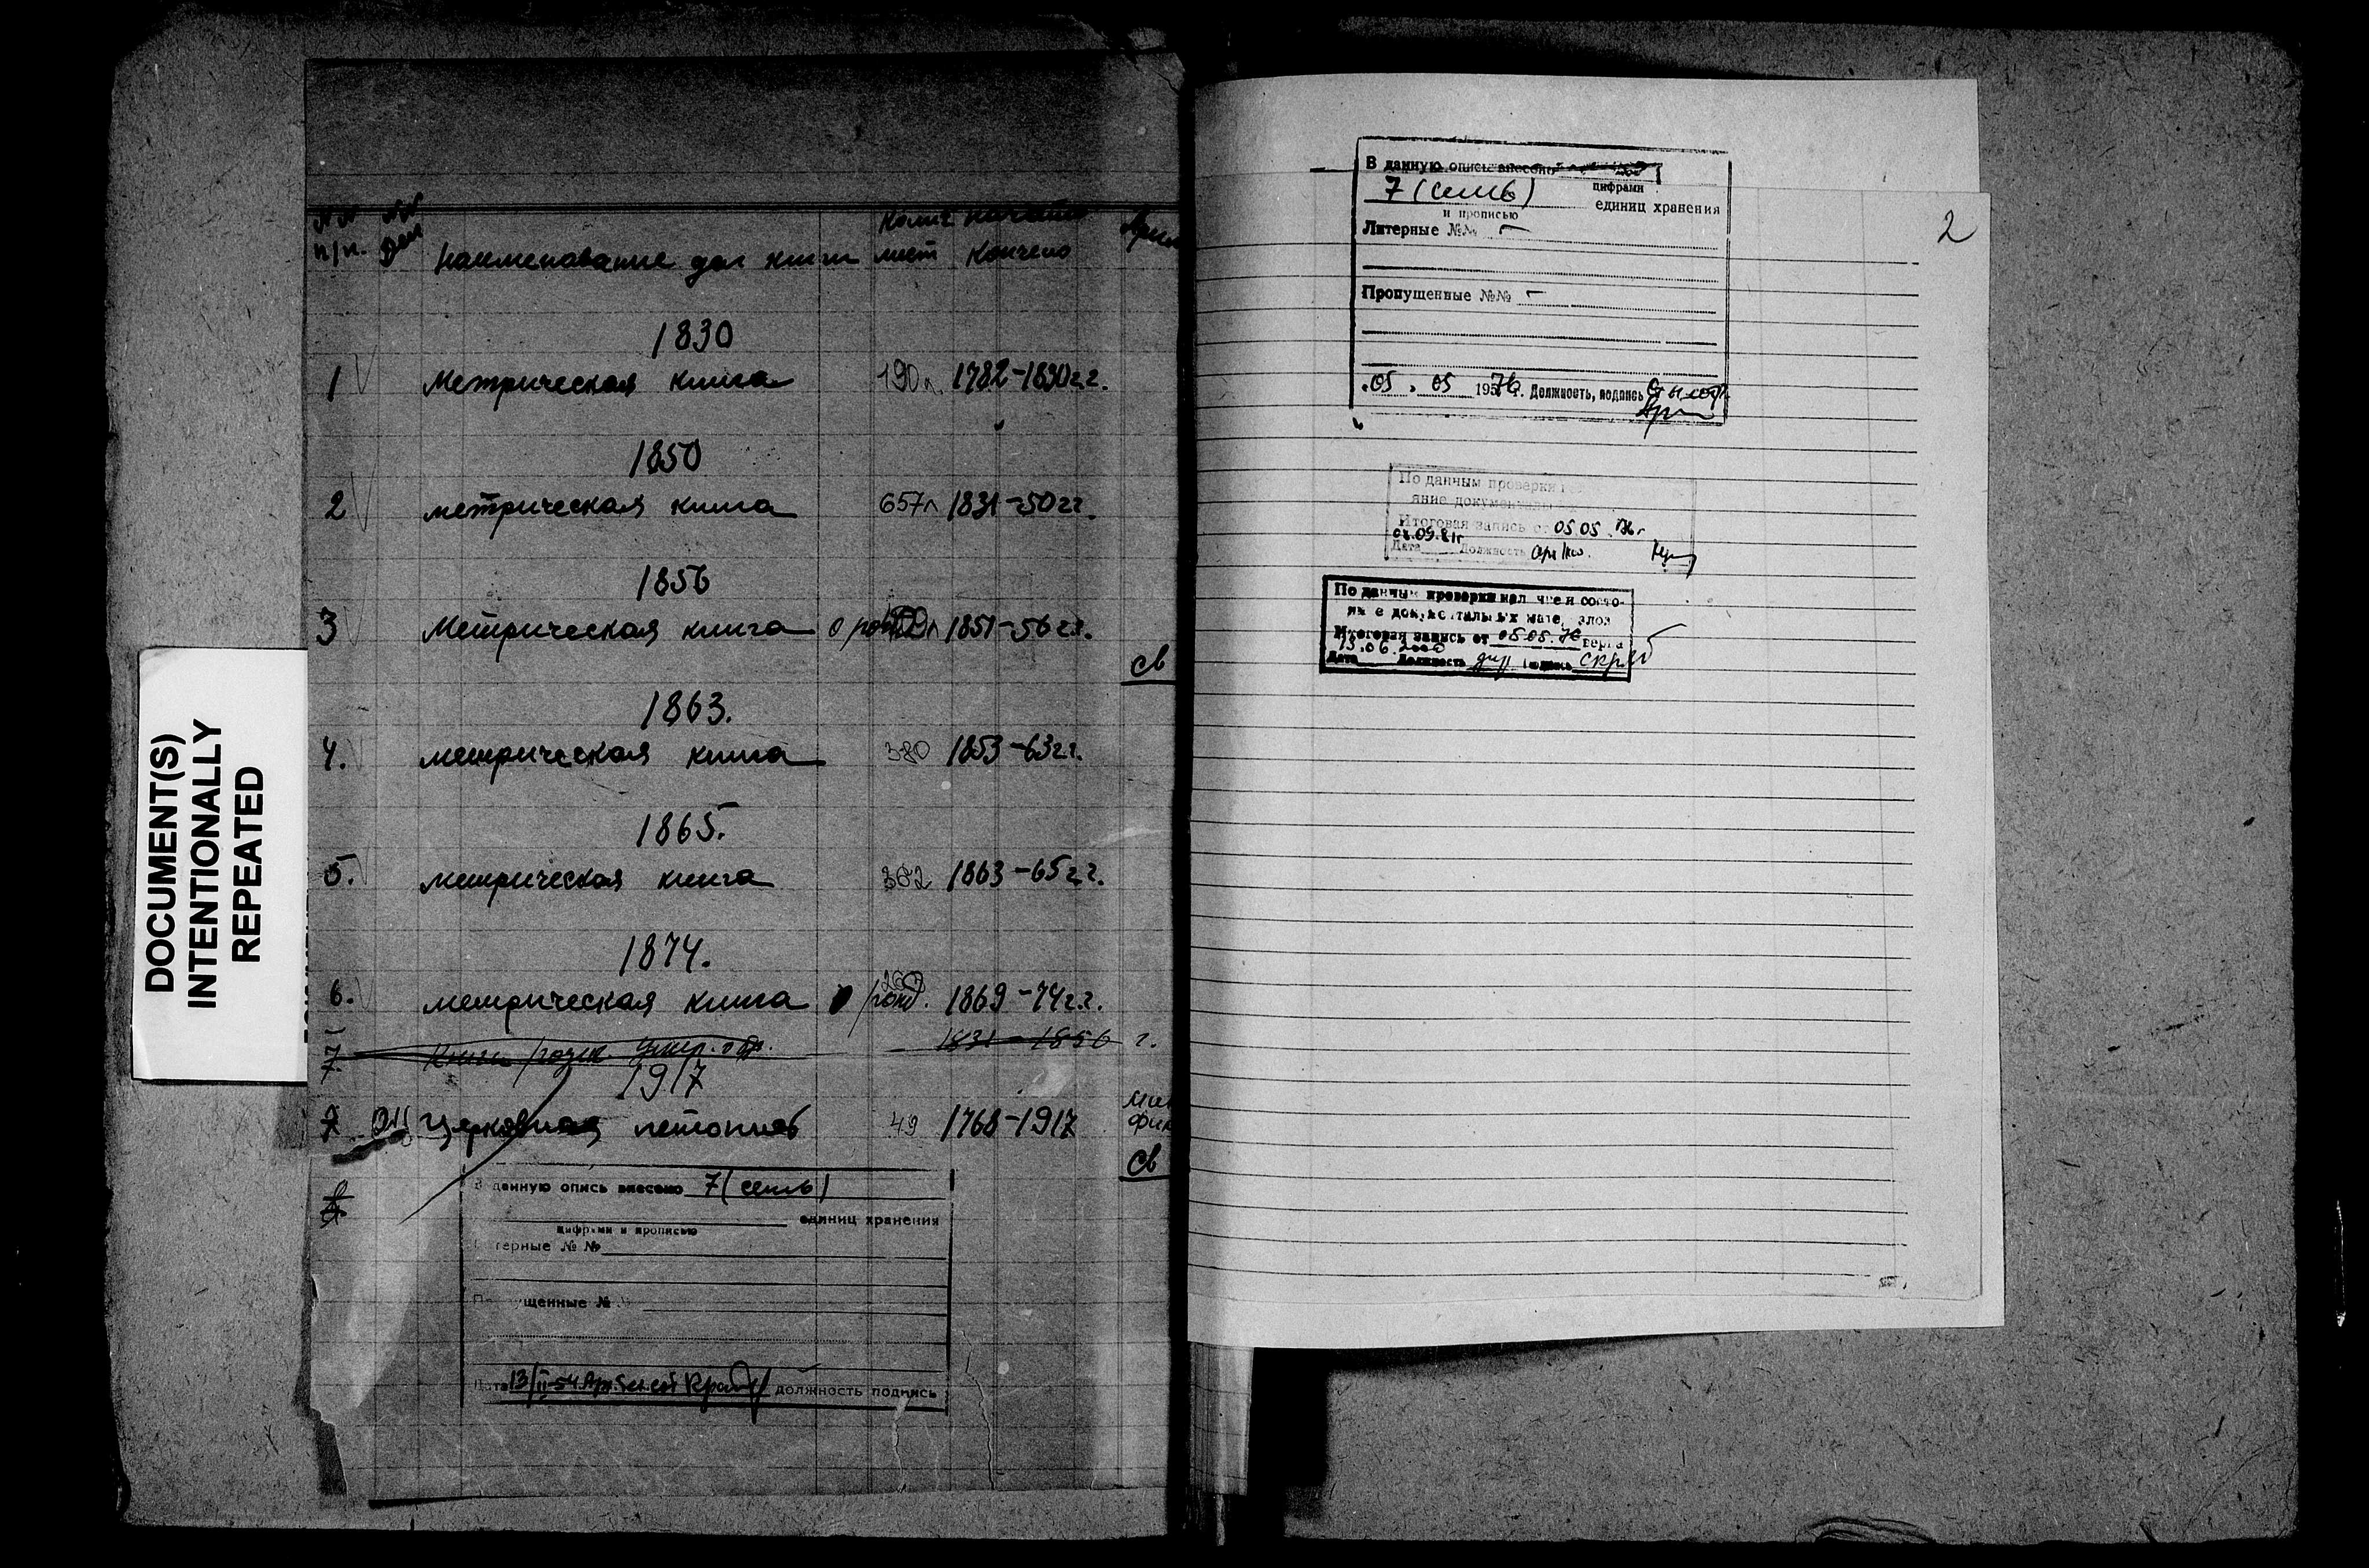 DOCUMENT(S)
INTENTIONALLY
REPEATED
№№ №№ колич начато
п/п. дел наименование дел книги лист кончено
1830
1 Метрическая книга 190л. 1782-1830г.г.
1850
2 метрическая книга 657л 1831-50гг.
1856
3 Метрическая книга о 1851-56 г.г.
св
1863.
4. метрическая книга 380 1853-63гг.
1865.
5. метрическая книга 382 1863-65г.г.
1874.
6. метрическая книга о рожд. 1869-74г.г.
7 Книги 1831-1856 г.
1917
7 ОЦ Церковная летопись 49 1768-1917
св
В данную опись внесено 7 (семь)
единиц хранения
цифрами и прописью
терные № №
щенные №
13/II-54 должность подпись
2
В данную опись внесено
цифрами
7 (семь) единиц хранения
и прописью
Литерные №№ —
Пропущенные №№ —
.05. 05 1976г. Должность, подпись
По данным проверки
яние документальных
Итоговая запись от 05 05 76г
04.09.81г
Дата Должность
По данным проверки наличия состо-
яние документальных мате
Итоговая запись от 05.05.76 верна
13.06.2000
Дата Должность дир подпись